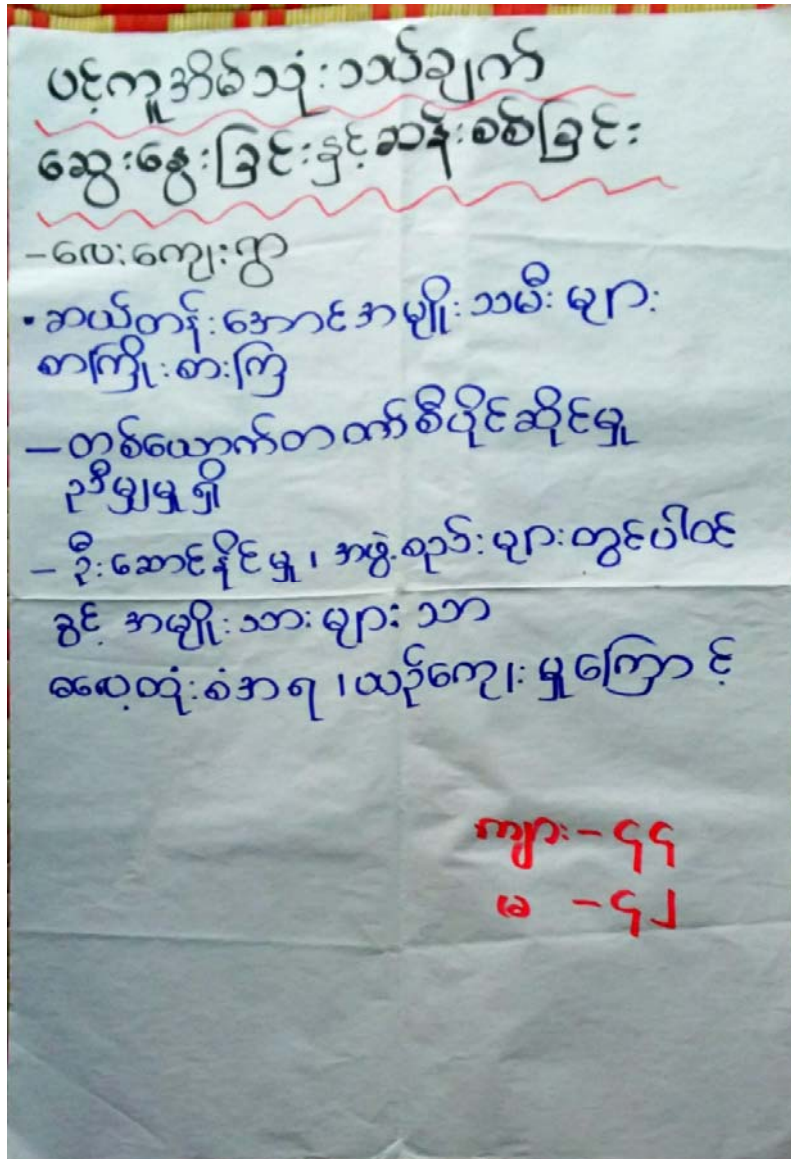 ပင့်ကူအိမ်သုံးသပ်ချက်
ဆွေးနွေးခြင်းနှင့်ဆန်းစစ်ခြင်း
-လေးကျေးရွာ
• ဆယ်တန်းအောင်အမျိုးသမီးများ
စာကြိုးစားကြ
- တစ်ယောက်တထက်စီပိုင်ဆိုင်မှု
ညီမျှမှုရှိ
- ဦးဆောင်နိုင်မှု၊ အဖွဲ့စည်းများတွင်ပါဝင်
ခွင့် အမျိုးသားများသာ
ဓလေ့ထုံးစံအရ၊ယဉ်ကျေးမှုကြောင့်
ကျား - ၄၄
မ - ၄၂